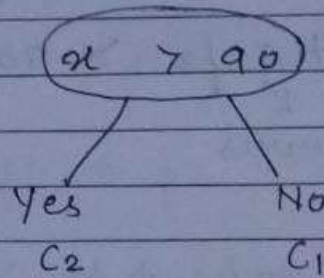 x > 90
Yes No
C2 C1